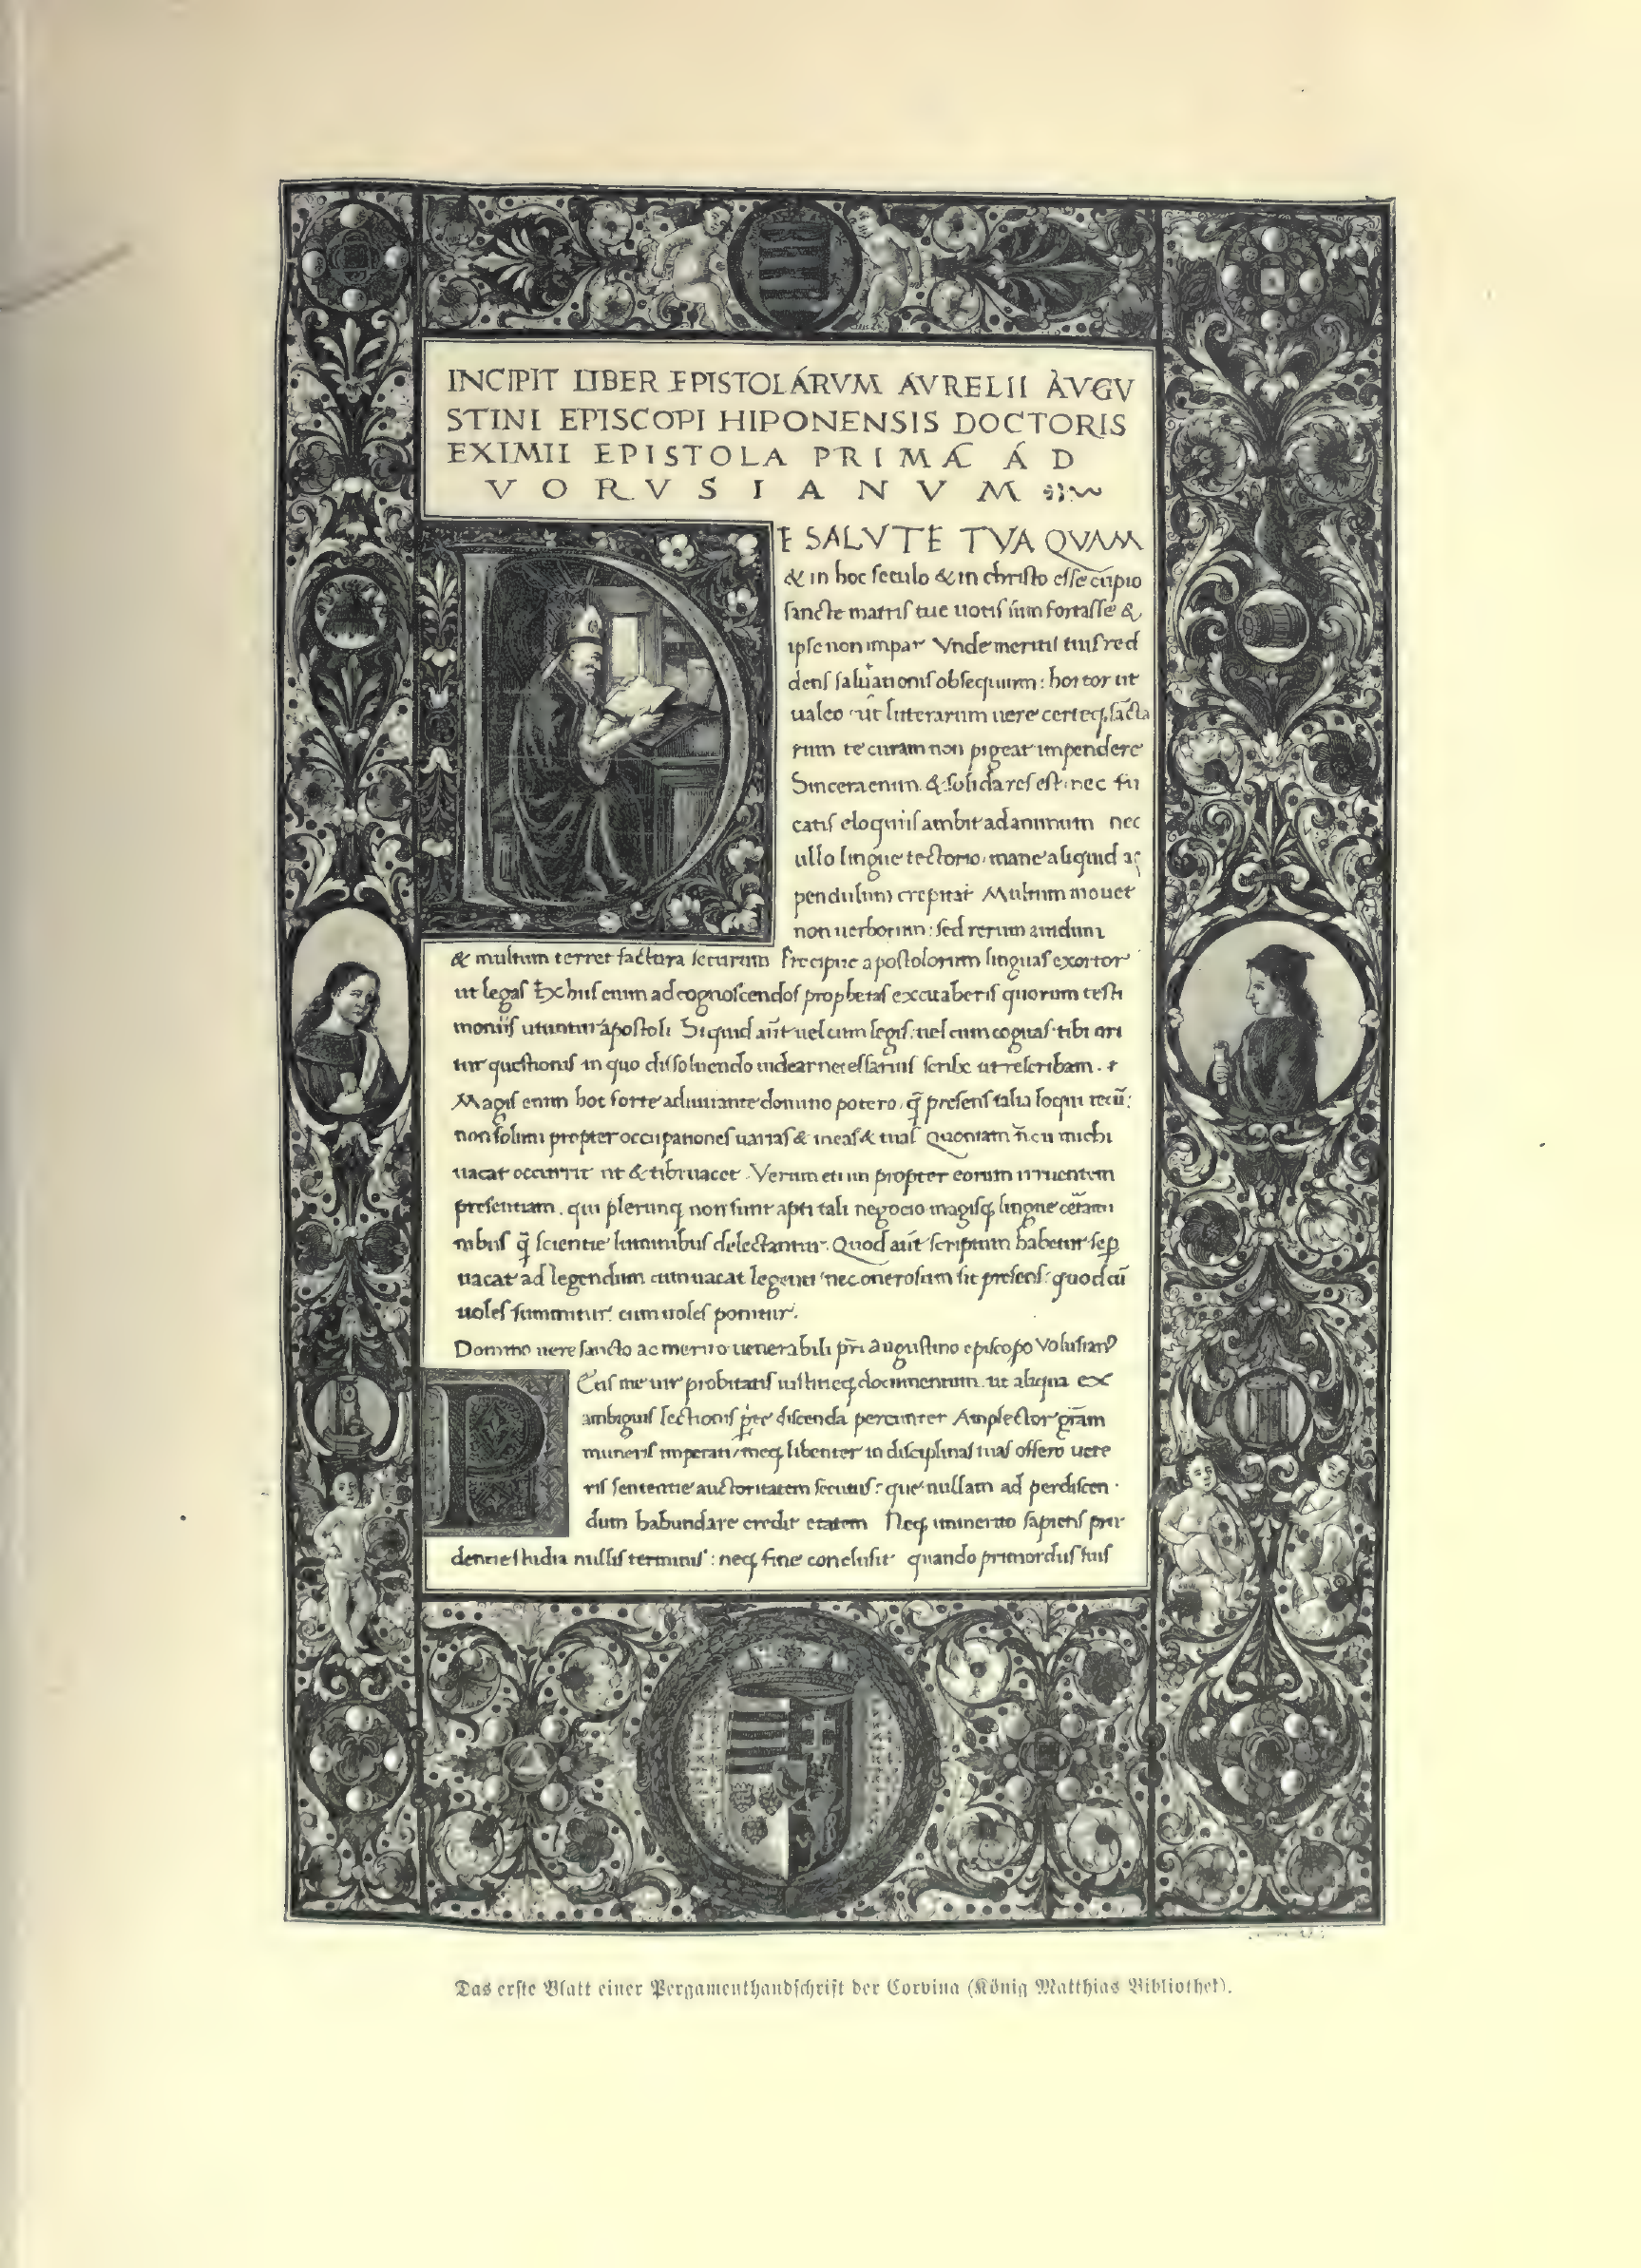 INCIPIT LIBER EPISTOLARVM AVRELII AVGV
STINI EPISCOPI HIPONENSIS DOCTORIS
EXIMII EPISTOLA PRIMA AD
VORVSIANVM
E SALVTE TVA QVAM
& in hoc seculo & in christo esse cupio
sancte matris tue uotis sum fortasse &
ipse non impar Vnde meritis tuis red
dens salutationis obsequium: hortor ut
ualeo ut litterarum uere certeq. sācta
rum te curam non pigeat impendere
Sincera enim & solida res est: nec fu
catis eloquiis ambit ad animum nec
ullo lingue tectorio mane aliquid ac
pendulum crepitat Multum mouet
non uerborum: sed rerum auidum
& multum terret factura securum Precipue apostolorum linguas exortor
ut legas Ex huis enim ad cognoscendos prophetas excitaberis quorum testi
moniis utuntur apostoli Si quid aūt uel cum legis: uel cum cogitas tibi ori
tur questionis in quo dissoluendo uidear necessarius scribe ut rescribam.
Magis enim hoc forte adiuuante domino potero. q̄ presens talia loqui tecū:
non solum propter occupationes uarias & meas & tuas Quoniam n̄ cu michi
uacat occurrit ut & tibi uacet. Verum etiam propter eorum irruentem
presentiam. qui plerunq non sunt apti tali negocio magisq lingue cētami
nibus q̄ scientie luminibus delectantur. Quod aūt scriptum habetur sep̄
uacat ad legendum cum uacat legenti nec onerosum fit presens: quod cū
uoles summitur: cum uoles ponitur.
Domino uere sancto ac merito uenerabili p̄ri augustino episcopo Volusianꝰ
Etis me uir probitatis iustitieq. documentum. ut aliqua ex
ambiguis lectionis p̄te discenda percunter Amplector grām
muneris imperati meq libenter in disciplinas tuas offero uete
ris sententie auctoritatem secutus: que nullam ad perdiscen
dum habundare credit etatem Neq. immerito sapiens pru
dentie studia nullis terminis: neq. fine conclusit quando primordiis suis
Das erste Blatt einer Pergamenthandschrift der Corvina (König Matthias Bibliothek).